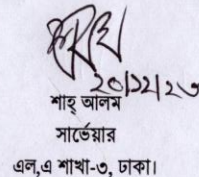 ২০/১২/২৩
শাহ্ আলম
সার্ভেয়ার
এল,এ শাখা-৩, ঢাকা।